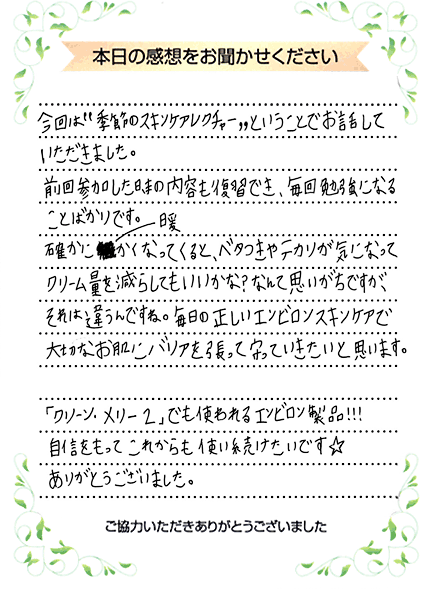 本日の感想をお聞かせください
今回は“季節のスキンケアレクチャー”ということでお話して
いただきました。
前回参加した時の内容も復習でき、毎回勉強になる
ことばかりです。
確かに暖かくなってくると、ベタつきやテカリが気になって
クリーム量を減らしてもいいかな?なんて思いがちですが、
それは違うんですね。毎日の正しいエンビロンスキンケアで
大切なお肌にバリアを張って守っていきたいと思います。
「クリーン・メリー2」でも使われるエンビロン製品!!!
自信をもってこれからも使い続けたいです☆
ありがとうございました。
ご協力いただきありがとうございました